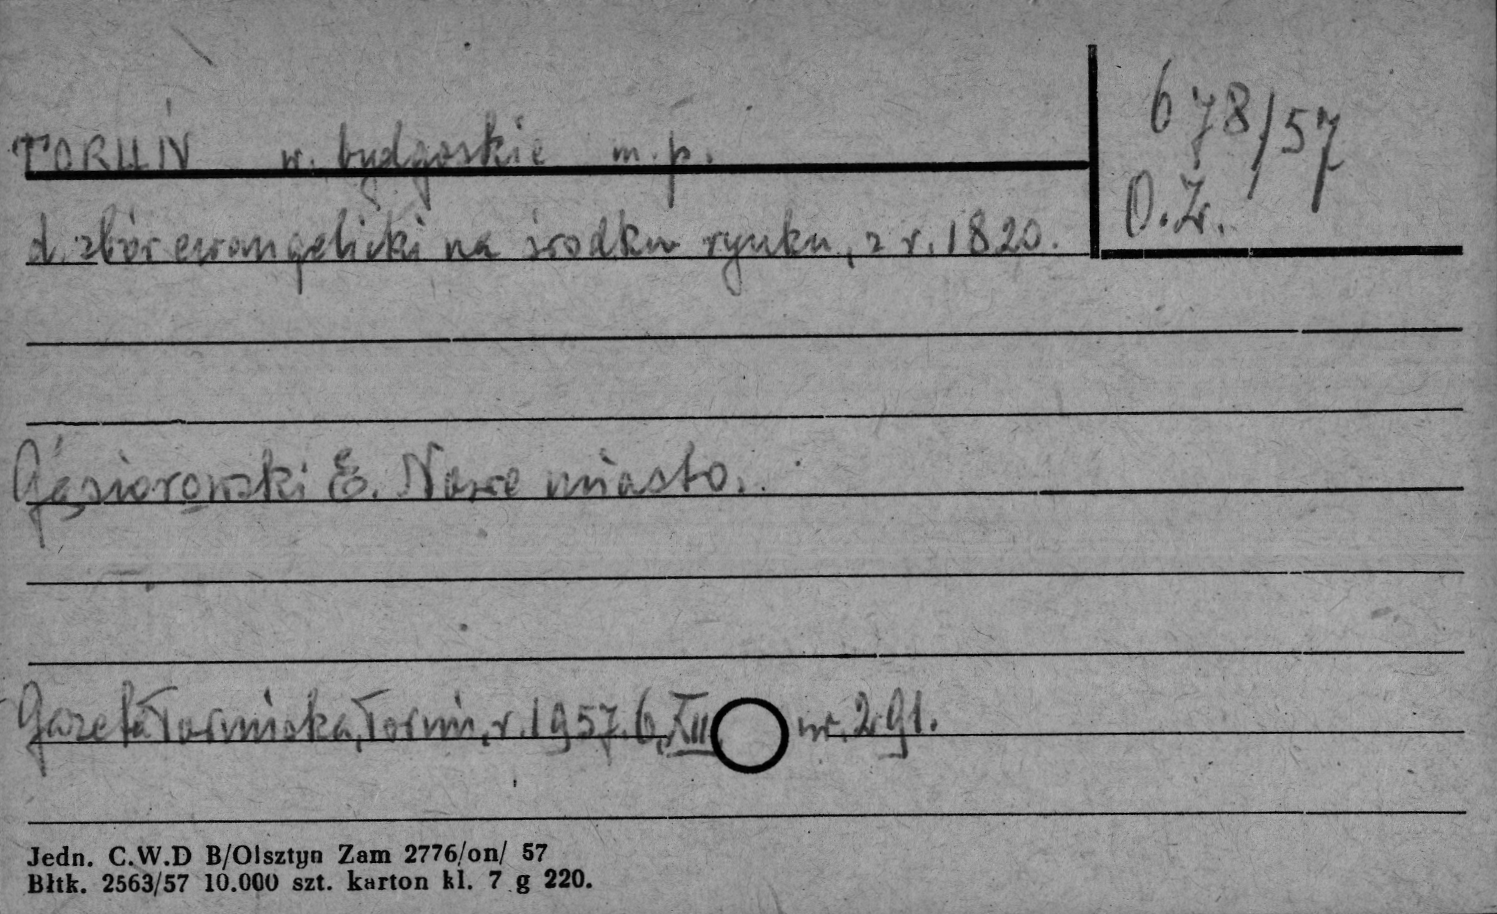 TORUŃ w. bydgoskie m.p.
678/57
O.Zr.
d. zbór ewangelicki na środku rynku, z r. 1820.
Gąsiorowski E. Nowe miasto.
Gazeta Toruńska, Toruń, r. 1957. 6. XII nr. 291.
Jedn. C.W.D B/Olsztyn Zam 2776/on/ 57
Błtk. 2563/57 10.000 szt. karton kl. 7 g 220.